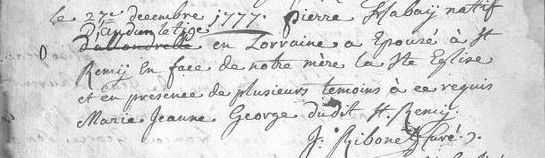 le 27e decembre 1777. pierre Habay natif
D'audun le tige
en Lorraine a Epousé à St
Remij En face de notre mere la Ste Eglise
et en presence de plusieurs temoins à ce requis
Marie Jeanne George dudit St. Remij
J. Ribonet curé